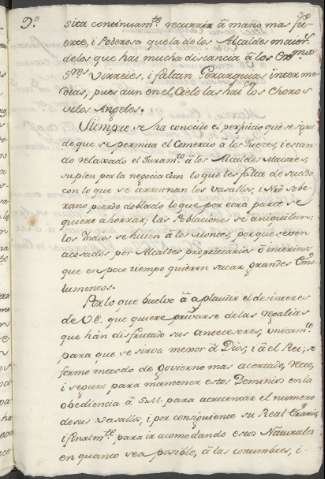 sita continuam.te recurrir à mano mas fu-
erte, i Poderosa que la de los Alcaldes maior.s
de los que hai mucha distancia à los
S.res Virreies, i faltan Gerarquias interme-
dias, pues aun en el Cielo las hai los choros
de los Angeles.
Siempre se ha conocido el perjuicio que se sigue
de que se permita el Comercio à los Jueces, i estan-
do relaxado el Juram.to à los Alcaldes Maiores,
suplen por la negociacion lo que les falta de sueldo
con lo que se arruinan los Vasallos, i No Sobe-
rano pierde doblado lo que por otra parte se
quiere ahorrar, las Poblaciones se aniquilan:
los Indios se huien à los Montes, porque se ven
acosados, por Alcaldes proprietarios ò interinos
que en poco tiempo quieren sacar grandes
lumentos.
Por lo que buelve à aplaudir el desinteres
de V.E. que quiere privarse de las Regalias
que han disfrutado sus antecesores, unicam.te
para que se sirva mejor à Dios, i à el Rei; se
forme metodo de govierno mas acertado,
i seguro para mantener estos Dominios en la
obediencia à S.M. para acrecentar el numero
de sus Vasallos, i por consiguiente su Real Erario,
i finalm.te para ir acomodando estos Naturales
en quanto sea posible, à las costumbres, i